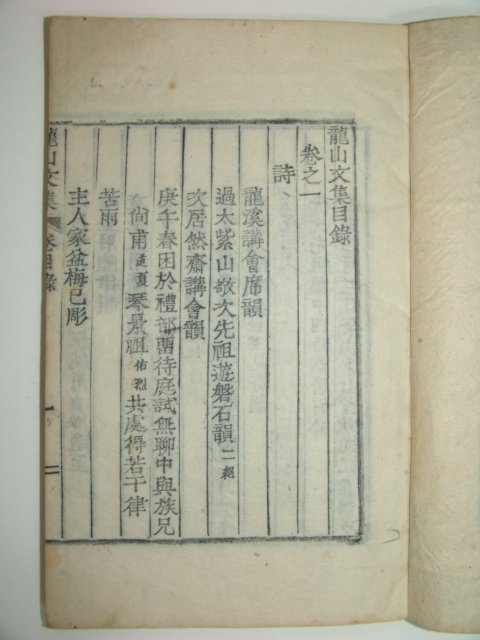 龍山文集目錄
卷之一
詩
龍溪講會席韻
過太紫山敬次先祖遊磐石韻 二絕
次居然齋講會韻
庚午春困於禮部留待庭試無聊中與族兄
尙甫 道夏 琴景祖 佑烈 共處得若干律
苦雨
主人家盆梅已彫
龍山文集 卷目錄 一